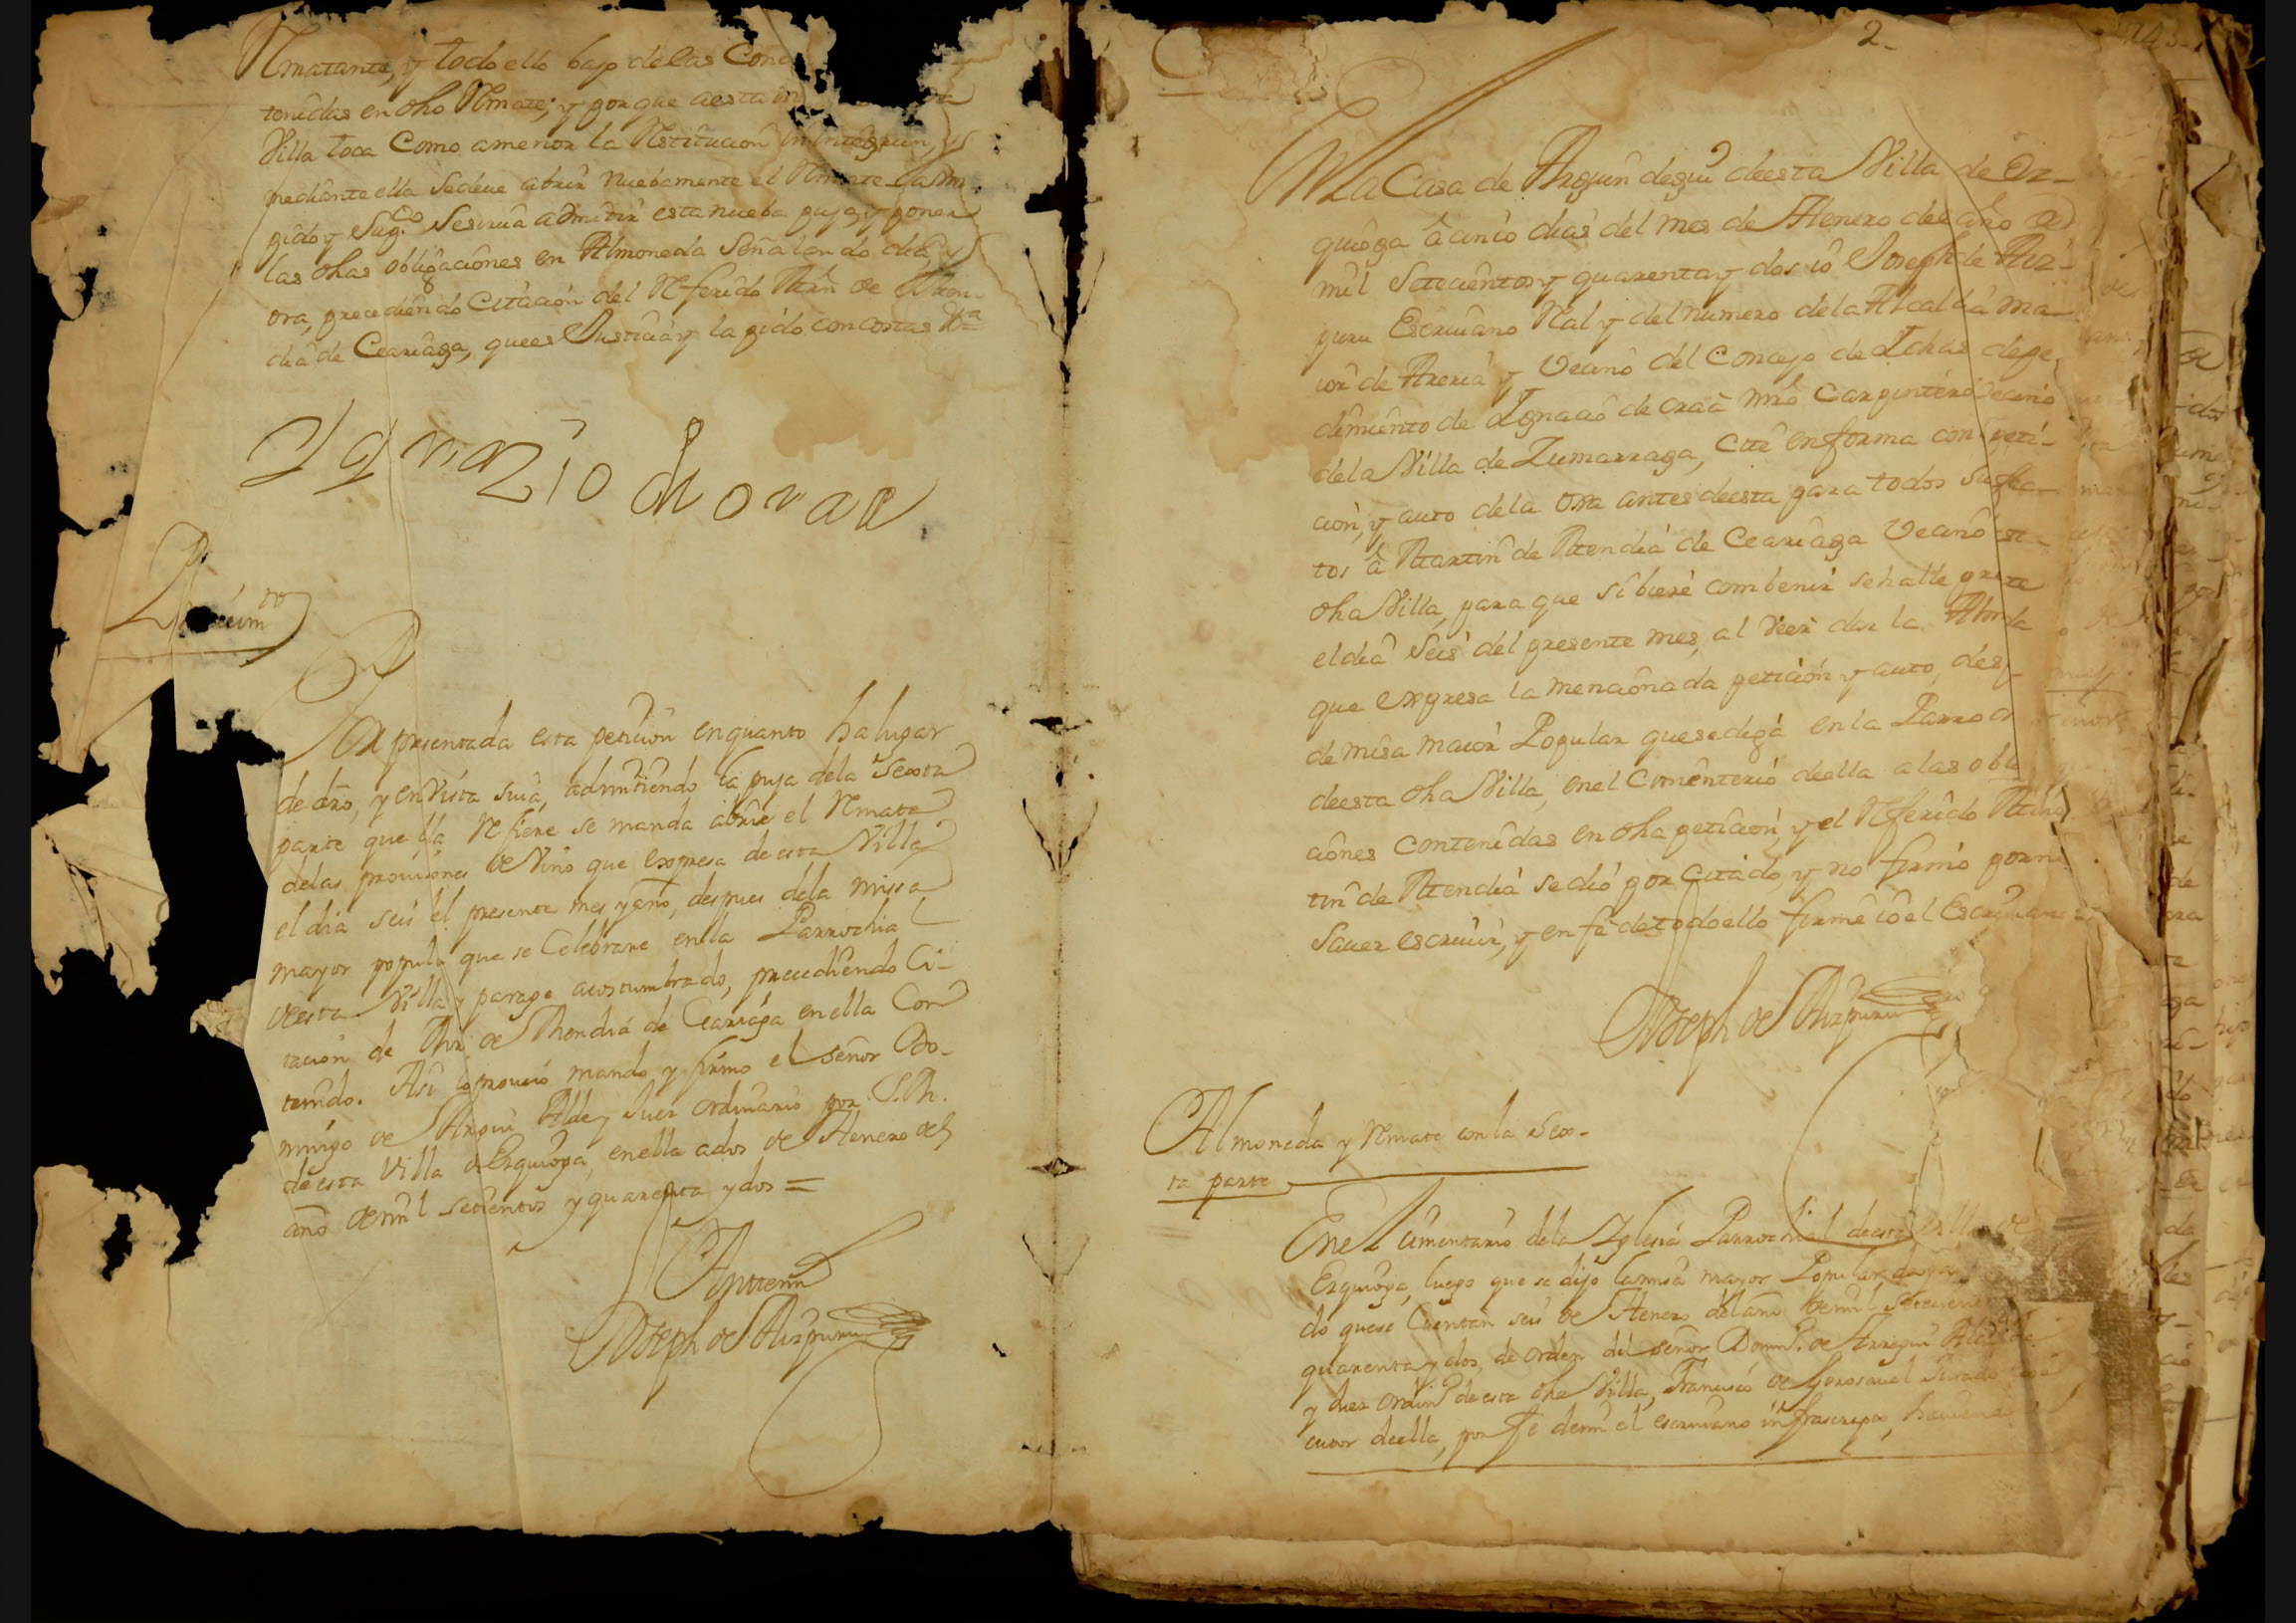 Rmatante, y todo ello bajo de las Con
tenidas en dho Rmate; y porque aesta
Villa toca Como amenor la Restitucion in integrun, y
mediante ella sedeve abrir nuebamente el Rmate
pido y Sup.co Sesirva admitir esta nueba puja, y poner
las dhas obligaciones en Almoneda Señalando dia, y
ora, precediendo Citacion del Referido Mrn de Men-
dia de Ceariaga, que es Justicia y la pido con costas &.a
Ygnazio de oraa
Por presentada esta peticion enquanto ha lugar
de dro, y en Vista suia, admitiendo la puja dela Sexta
parte que la Refiere se manda abrir el Rmate
delas provisiones de Vino que expresa de esta Villa
el dia seis del presente mes y año, despues dela missa
mayor popular que se Celebrare en la Parrochial
de esta Villa y parage acostumbrado, precediendo Ci-
tacion de Mrn de Mendia de Ceariaga en ella Con
tenido. Asi lo proveio mando y firmo el señor Do-
mingo de Argui Alde y Juez ordinario por S.M.
de esta Villa de Ezquioga, en ella a dos de Henero del
año de mil setecientos y quarenta y dos =
Antemi
Joseph de Aizpuru
2-
En la Casa de Argin degui de esta Villa de Ez-
quioga â cinco dias del mes de Henero del año de
mil Setecientos y quarenta y dos io Joseph de Aiz-
puru Escrivano Real y del numero de la Alcaldia ma-
ior de Areria y Vecino del Concejo de Ichaso de pe-
dimiento de Ignacio de oraa Mro Carpintero Vecino
dela Villa de Zumarraga, Cite en forma con peti-
cion, y auto dela ora antes de esta para todos Sus efec-
tos â Martin de Mendia de Ceariaga Vecino
dha Villa, para que si biere combenir se halle
el dia Seis del presente mes, al veer dar la
que expresa la mencionada peticion y auto, des
de misa maior Popular que se diga en la Parro
de esta dha Villa, en el Cimenterio de ella a las obli
ciones contenidas en dha peticion, y el Referido Mar
tin de Mendia se dio por Citado, y no firmo por n
Saver escrivir, y en fe de todo ello firme io el Escrivan
Joseph de Aizpuru
Almoneda y Rmate con la Sex-
ta parte
En el Cimenterio dela Yglesia Parrochial de esta Villa de
Ezquioga, luego que se dijo la misa mayor Popular,
do que se Cuentan seis de Henero del año de mil Setecien
quarenta y dos, de orden del señor Dom.o de Arregui Alde
y Juez Ordin.o de esta dha Villa, Francisco de Gorosavel Jurado
cutor de ella, por Fe de mi el escrivano infrascripto, haviendo